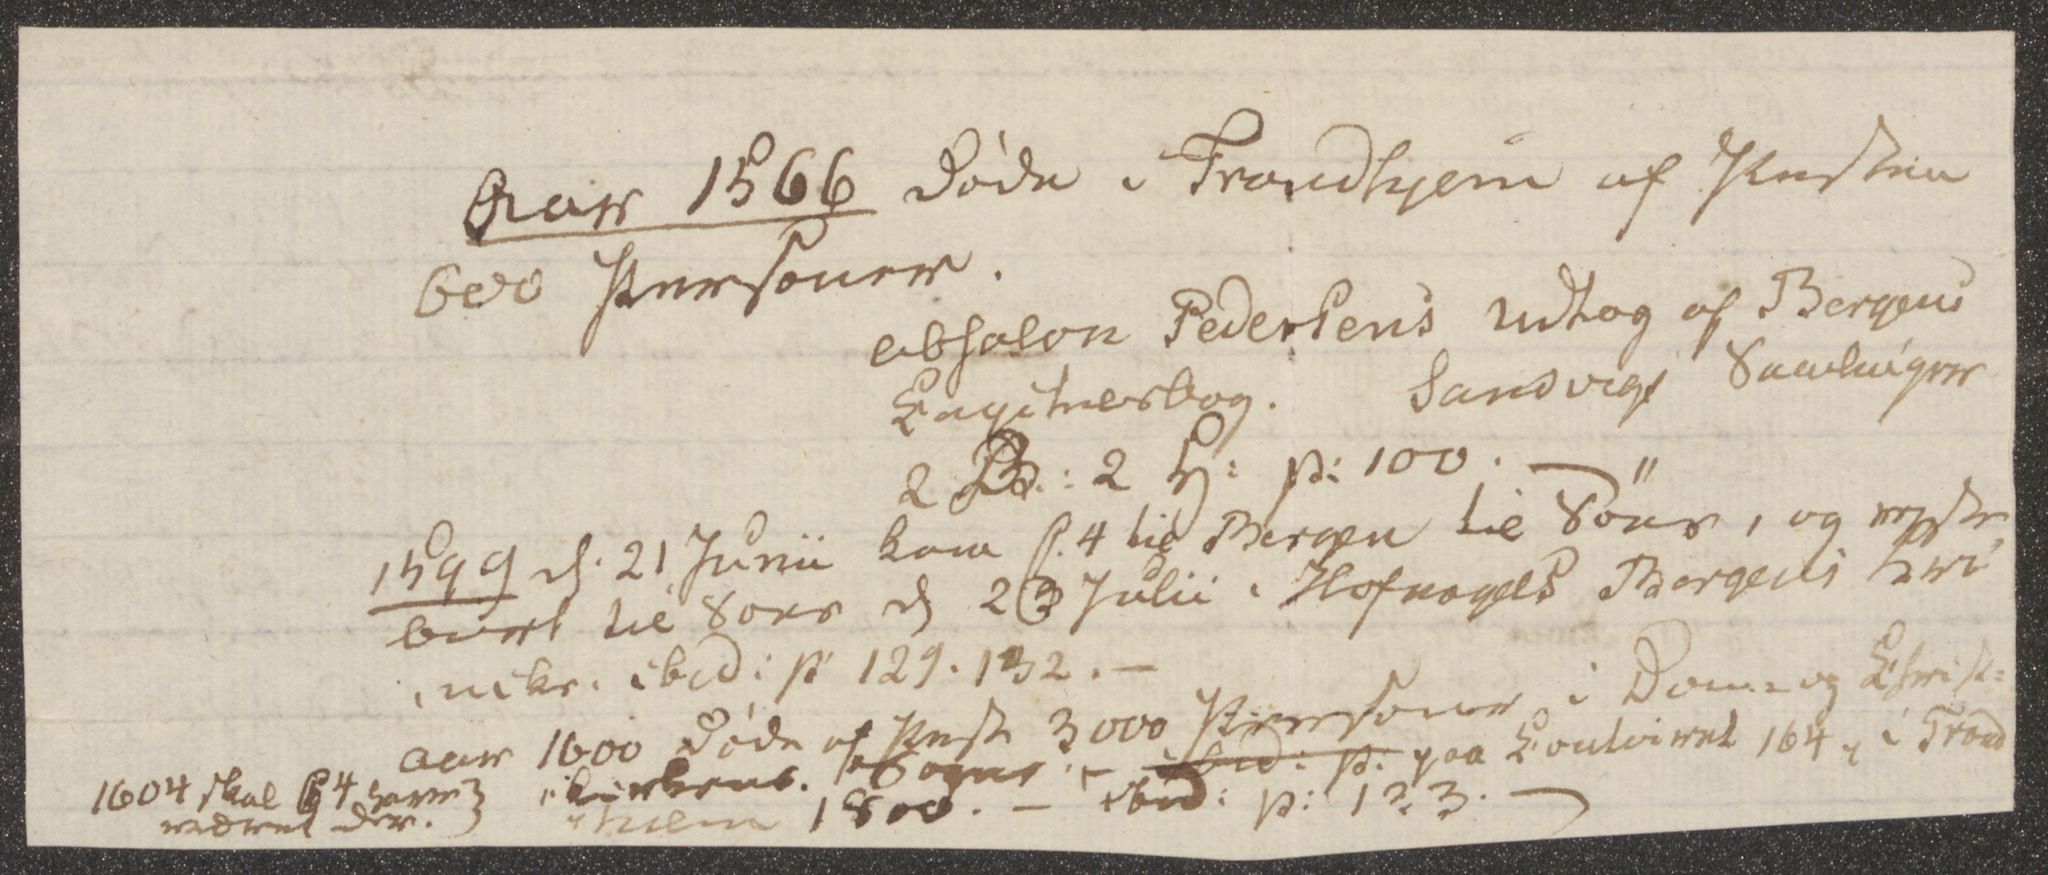 Aar 1566 døde i Trondhjem af Pesten
600 Personer.
Absalon Pedersens Udtog af Bergens
Capituelsbog. Sandvigs Samlinger
2 B.: 2 H: p: 100. — "
1599 d. 21 Junii kom C. 4 til Bergen til Söes, og reyste
bort til Söes d 23 Julii i Hofnagels Bergens Krö
nike. ibid: p 129. 132. —
aar 1600 døde af Pest 3000 Personer i Dom- og Christ-
kirkens Sogne. — ibid: p. paa Contoiret 164, i Trond
hiem 1800. — ibid: p: 123. —
1604 skal C 4 have
været der.